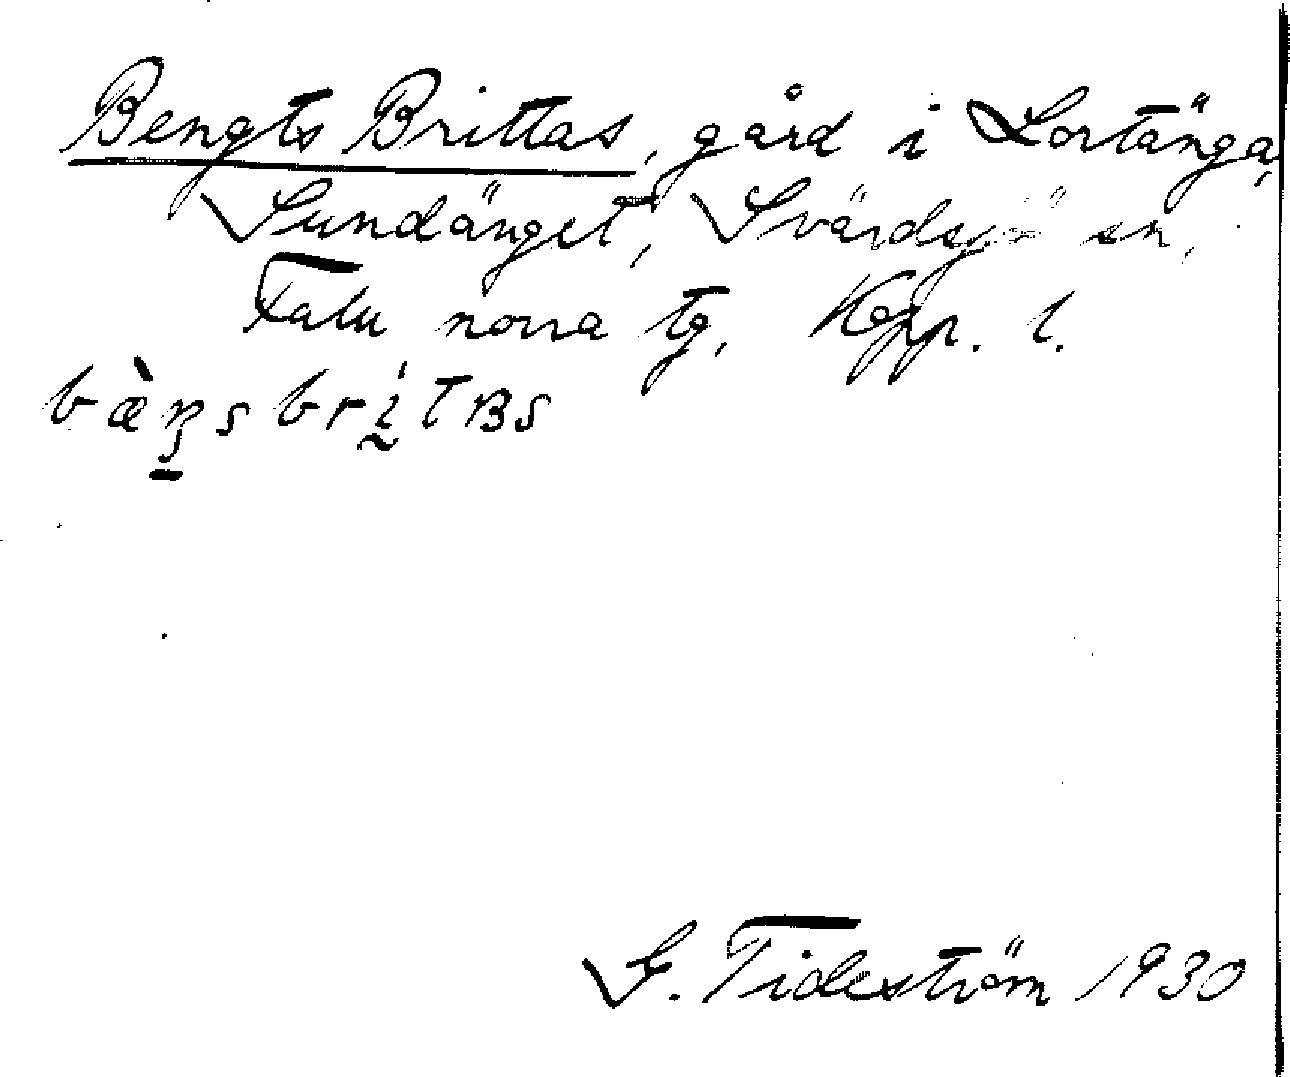 Bengts Brittas, gård i Lortänga,
Sundänget, Svärdsjö sn,
Falu norra tg, Kopp. l.
G. Tideström 1930